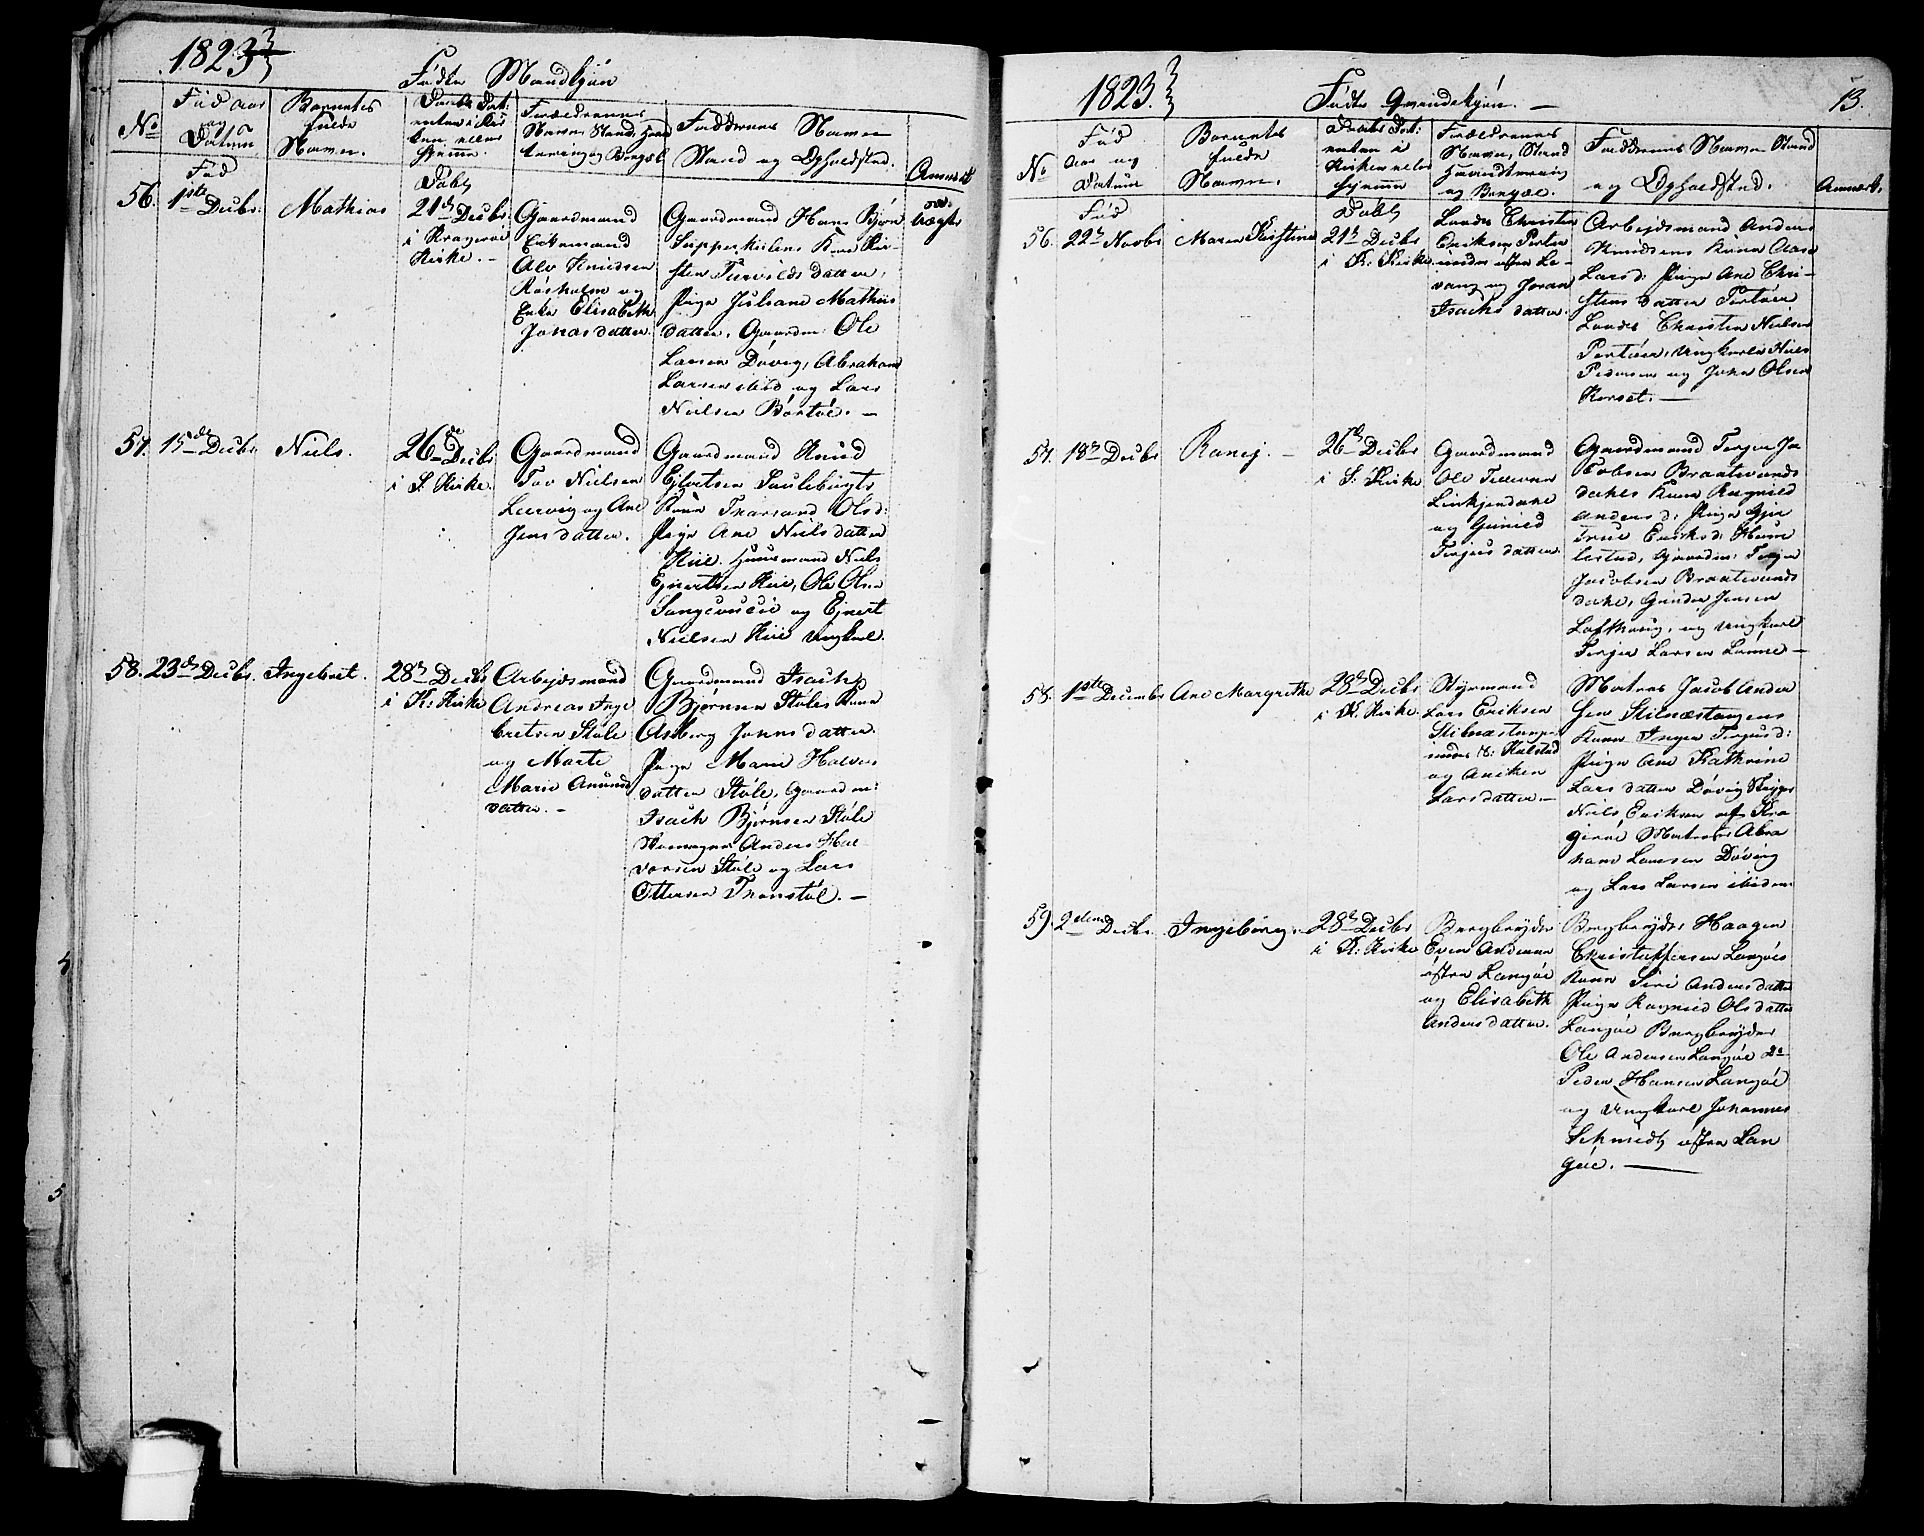 1823
Fødte Mandkjön
No
Fød aar
og
Datum
Barnets
fulde
Navn.
Forældrenes
Navn, Stand, Haand
tæring og Bopæl
Faddernes Navn
Stand og Opholdsted.
Anmærk
Fød
56.
1ste Decbr.
Mathias
Døbt
21de Decbr.
i Kragerøe
Kirke. -
Gaardmand
Enkemand
Alv Knudsen
Røsholm og
Enke Elisabeth
Jonasdatter.
Gaardmand Hans Björn
Kone Kir-
sten Torvildsdatter,
Pige Juliane Mathiis
datter, Gaardm: Ole
Larsen Döveg, Abraham
Larsen ibid og Lars
Nielsen Börtöe. -
57.
15de Decbr
Niels.
26de Decbr
i S. Kirke.
Gaardmand
Tov Nielsen
Leervig og Ane
Jensdatter.
Gaardmand Knud
Kone Thorand Olsd:
Pige Ane Nielsdatter
Kiil. Huusmand Niels
Ejvertsen Kiil, Ole Olsen
og Ejvert
Nielsen Kiil Ungkarl.
58.
23de Decbr.
Ingebret.
28de Decbr
i K: Kirke
Arbejdsmand
Andreas Inge
bretsen Stöle
og Marte
Marie Amund
datter. -
Gaardmand Isach
Björnsen Stöles Kone
Asberg Jonnsdatter.
Pige Marie Halvors
datter Stöle, Gaardm:
Isach Björnsen Stöle
Anders Hal-
vorsen Stöle og Lars
Ottersen Transtöl. -
1823.
Fødte Qvindekjön. -
13.
No
Fød
Aar og
Datum
Barnets
fulde
Navn.
Daabs Dat:
enten i
Kirken eller
hjemme
Forældrenes
Navn, Stand
Haandtæring
og Bopæl.
Faddernes Navn Stand
og Opholdsted.
Anmærk.
Fød
56.
22de Novbr
Maren Kirstine
Døbt
21de Decbr
i K: Kirke
Lods Christen
Eriksen Portør
og Joran
Isachsdatter.
Arbejdsmand Anders
Knudsens Kone Aase
Larsd: Pige Ane Chri-
stensdatter Portøer
Lods Christen Nielsen
Portøer, Ungkarle Niels
Pedersen og John Olsen
Korset. -
57.
18de Decbr
Ranej. -
26de Decbr
i S: Kirke
Gaardmand
Ole Tellevsen
og Gunild
Terjesdatter.
Gaardmand Terjer Ja
cobsen Braatevands
dahls Kone Ragnild
Andersd: Pige Gjer
true Eriksd: Hum
lestad, Gaardm: Terjer
Jacobsen Braatevands
dahl, Gunder Jensen
Lofthuug, og Ungkarl
Terjer Larsen Lönne -
58.
1ste Decembr
Ane Margrethe
28de Decbr
i K: Kirke.
Styrmand
Lars Eriksen
Stilnestang
og Aniken
Larsdatter. -
Matros Jacob Ander
sen Stilnæstangens
Kone Inger Terjusd:
Pige Ane Kathrine
Larsdatter Döveg Skipper
Niels Eriksen af Kra
geröe Matros Abra
ham Larsen Döveg
og Lars Larsen ibidem
59.
2den Decbr.
Ingeborg. -
28de Decbr
i K: Kirke
Bergbryder
Even Andersen
østre Langöe
og Elisabeth
Andersdatter.
Bergbryder Haagen
Christophersen Langöes
Kone Siri Andersdatter
Pige Ragnild Olsdatter
Langöe Bergbryder
Ole Andersen Langöe Do
Peder Hansen Langöe
og Ungkarl Johannes
Schmidt østre Lan
göe. -